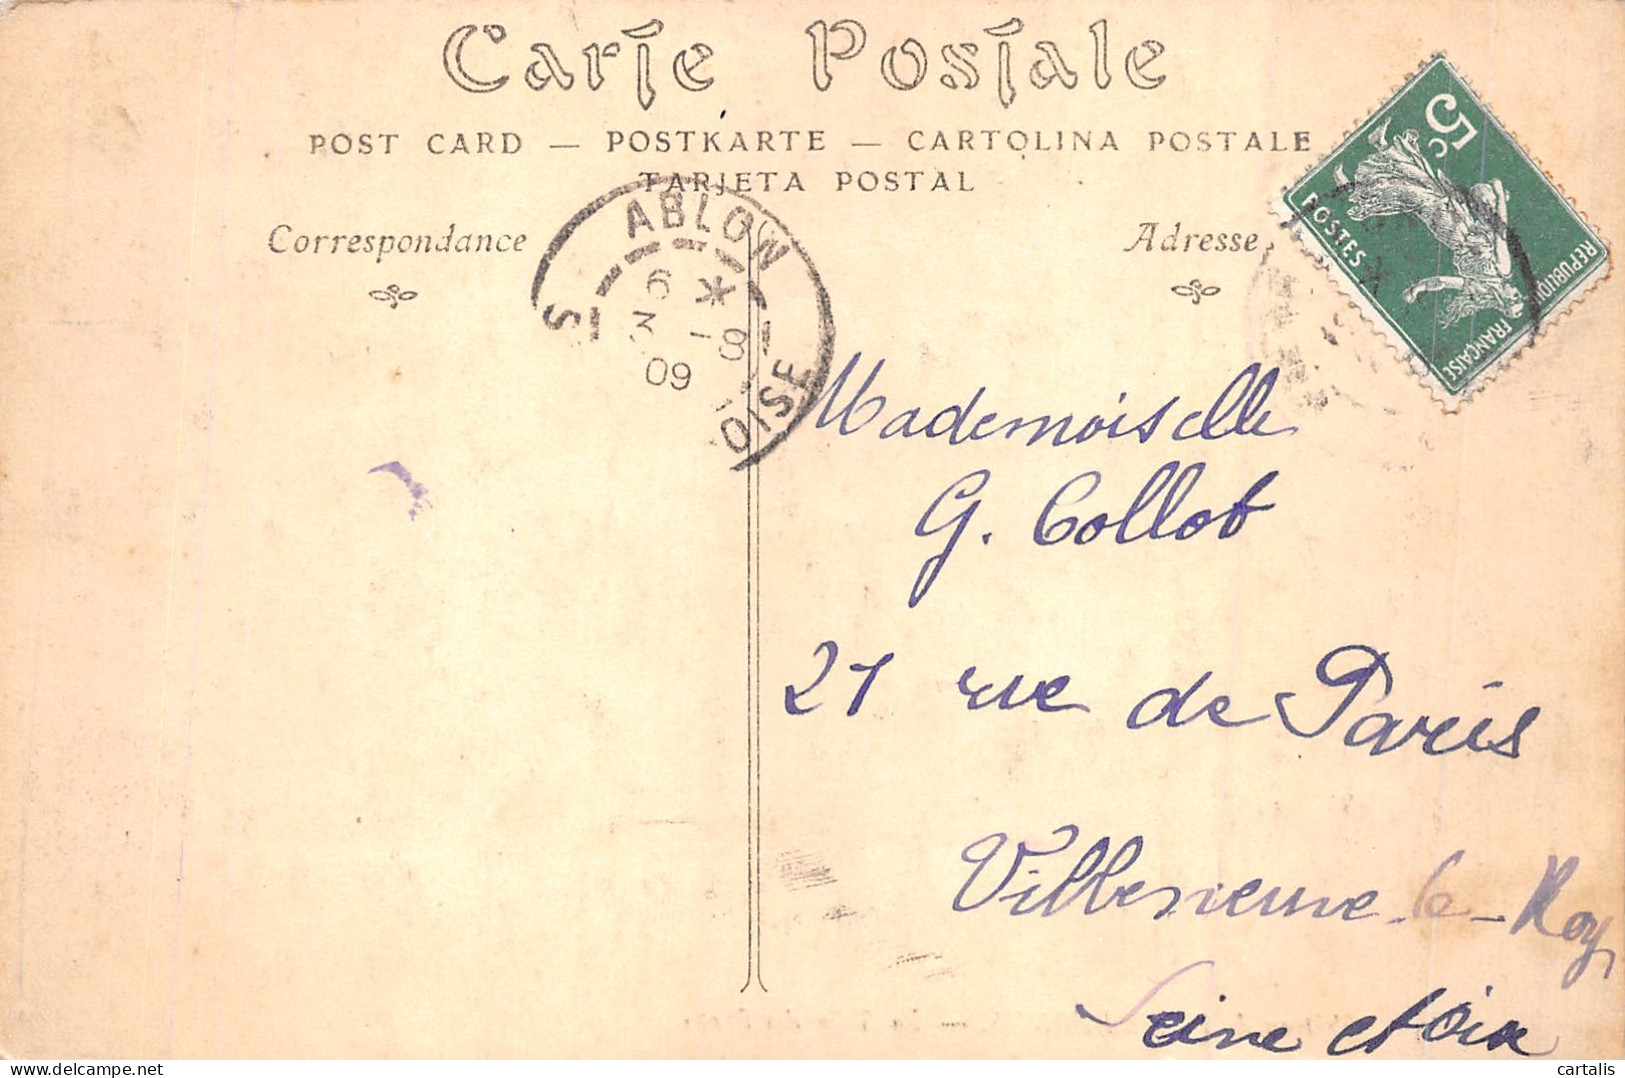 Carte Postale
POST CARD — POSTKARTE — CARTOLINA POSTALE
TARJETA POSTAL
Correspondance
Adresse
5c
POSTES
REPUBLIQUE FRANÇAISE
ABLON
S
OISE
6 * 
8
09
Mademoiselle
G. Collot
21 rue de Paris
Villeneuve-le-Roy
Seine et Oise
delcampe.net
cartalis